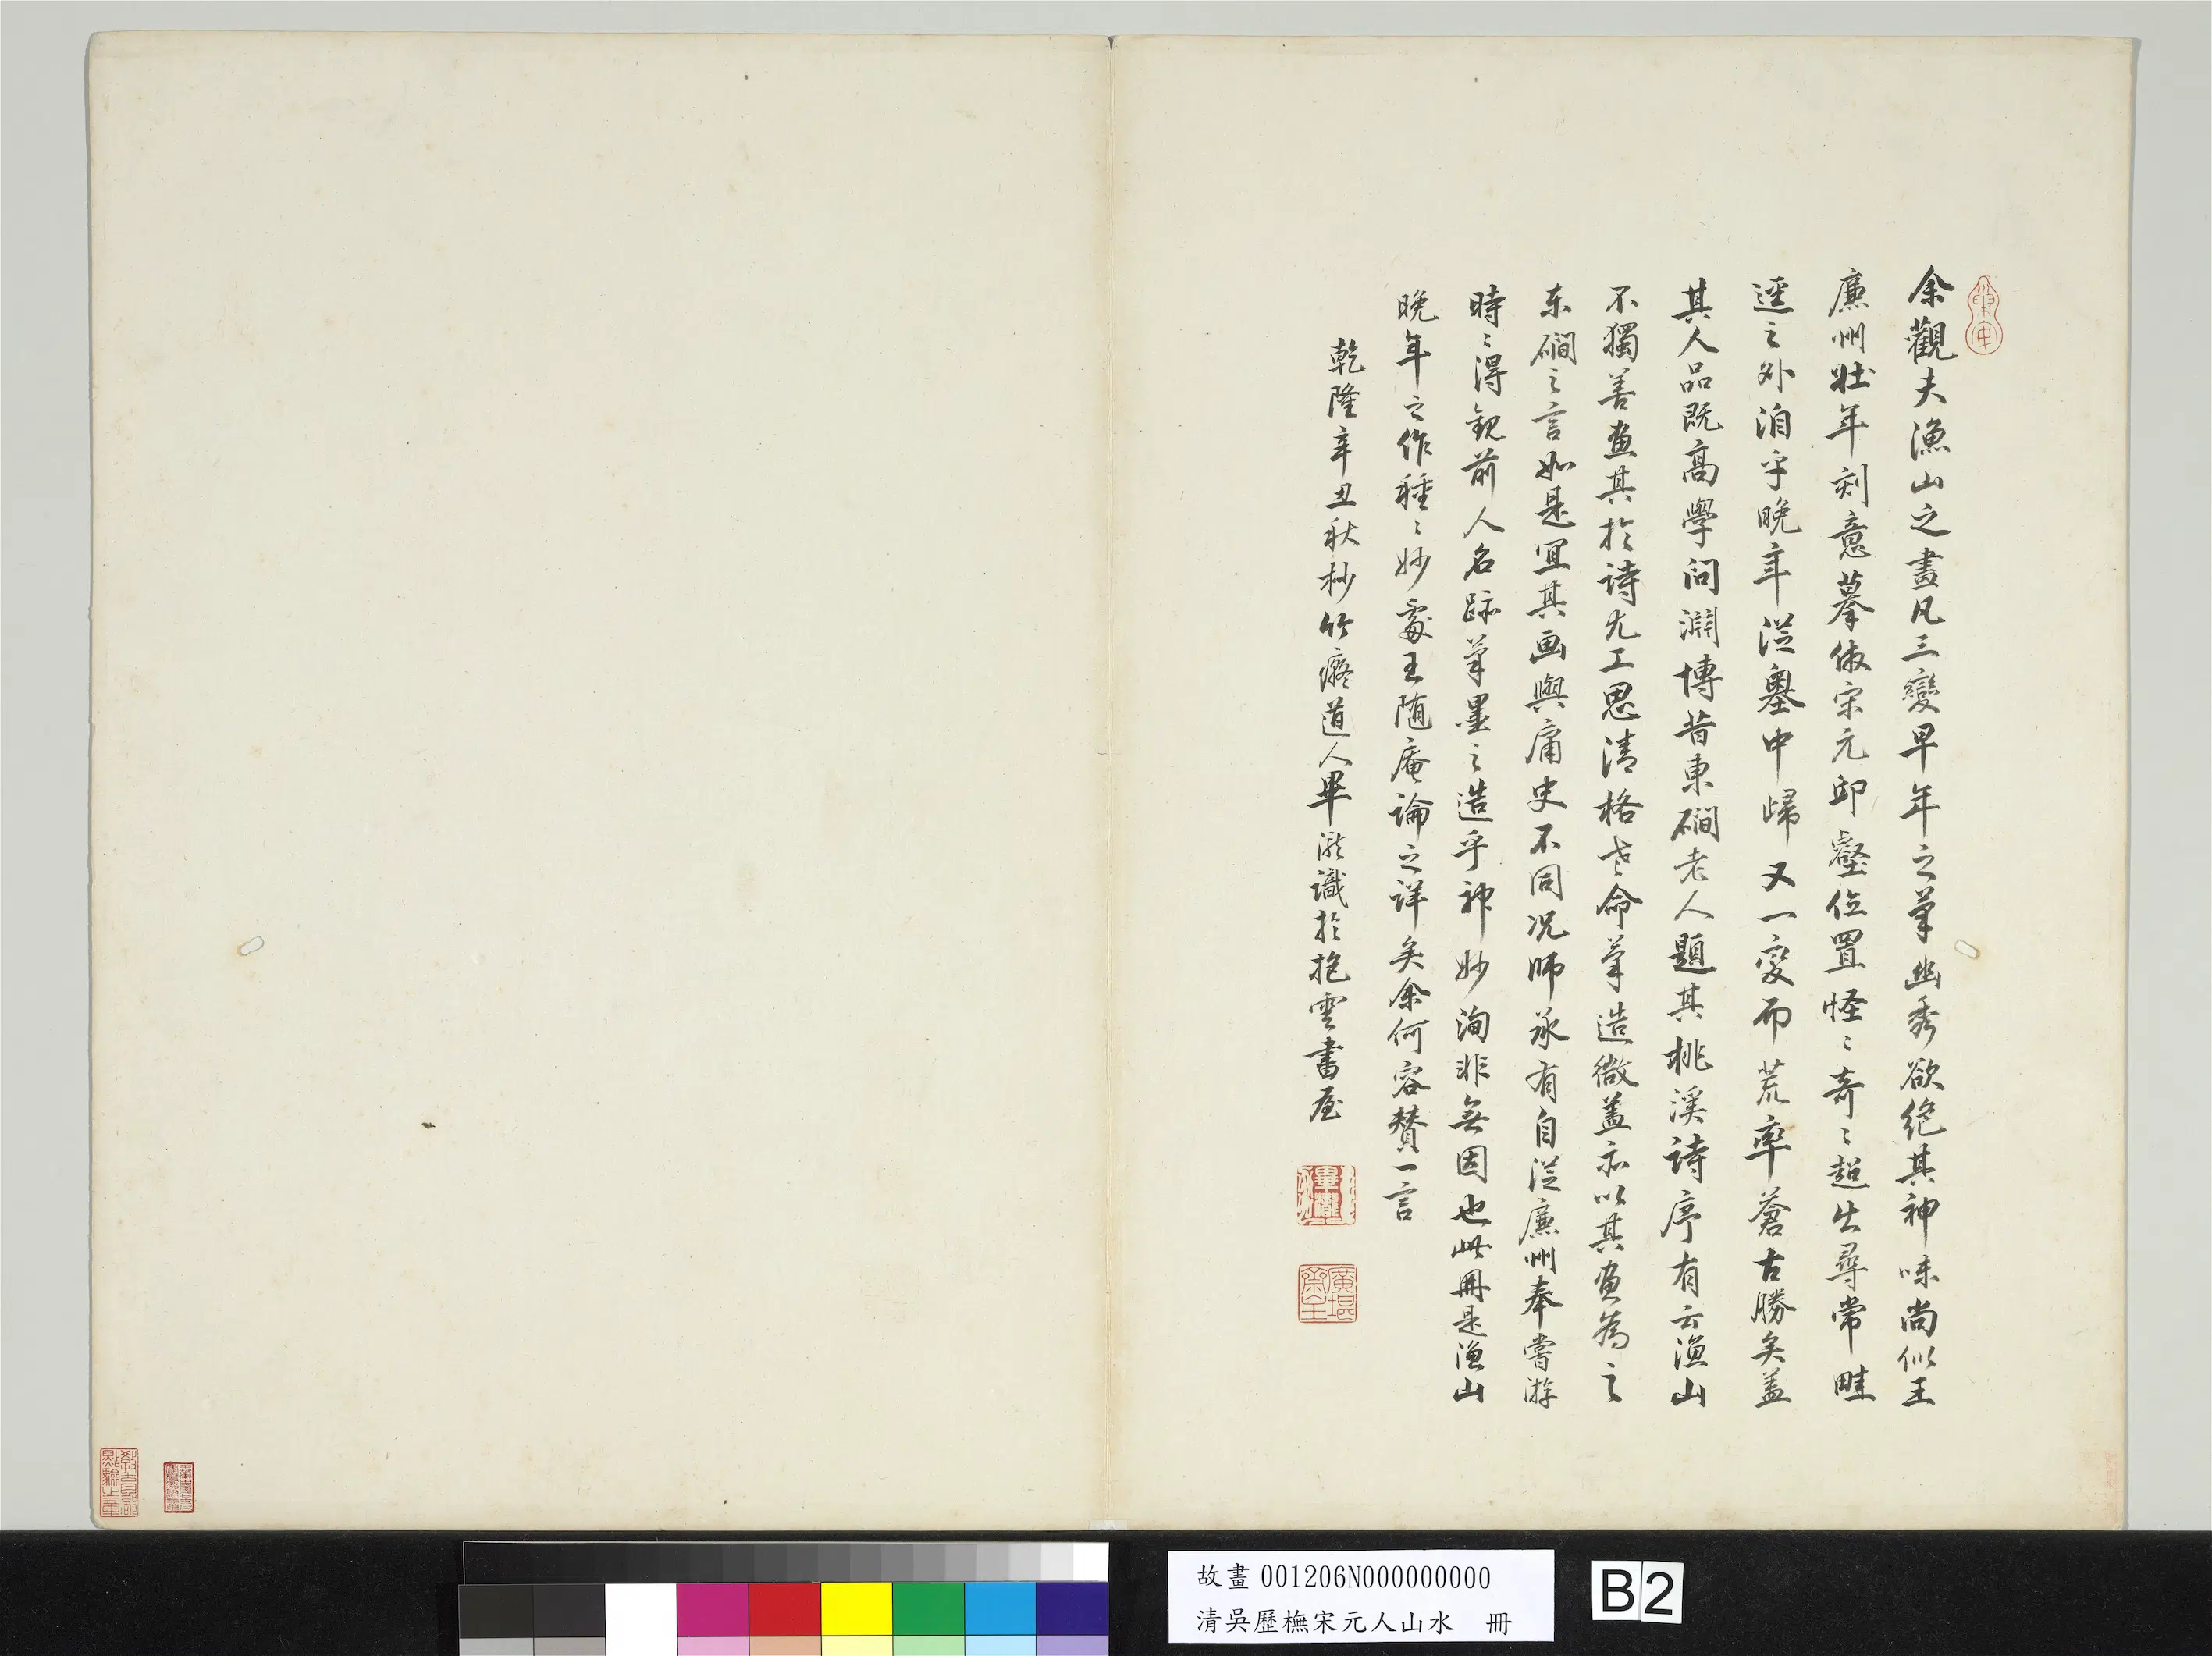 余觀夫漁山之畫凡三變早年之筆幽秀欲絕其神味尚似王
廉州壯年刻意摹倣宋元邱壑位置怪〻奇〻超出尋常畦
逕之外洎乎晚年從墨中歸又一變而荒率蒼古勝矣蓋
其人品既高學問淵博昔東磵老人題其桃溪詩序有云漁山
不獨善畫其於詩尤工思清格老命筆造微蓋亦以其畫為之
东磵之言如是宜其画與庸史不同況師承有自從廉州奉嘗游
時〻得觀前人名跡筆墨之造乎神妙洵非無因也此冊是漁山
晚年之作種〻妙處王随庵論之詳矣余何容贊一言
乾隆辛丑秋杪竹癡道人畢瀧識於抱雲書屋
畢瀧
廣堪齋主
故畫 001206N000000000
清吳歷橅宋元人山水 冊
B2